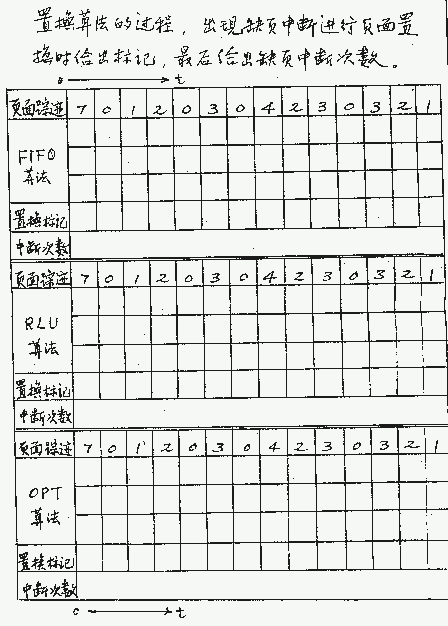 置换算法的过程，出现缺页中断进行页面置
换时给出标记，最后给出缺页中断次数。
0 t
页面踪迹 7 0 1 2 0 3 0 4 2 3 0 3 2 1
FIFO
算法
置换标记
中断次数
页面踪迹 7 0 1 2 0 3 0 4 2 3 0 3 2 1
RLU
算法
置换标记
中断次数
页面踪迹 7 0 1 2 0 3 0 4 2 3 0 3 2 1
OPT
算法
置换标记
中断次数
0 t